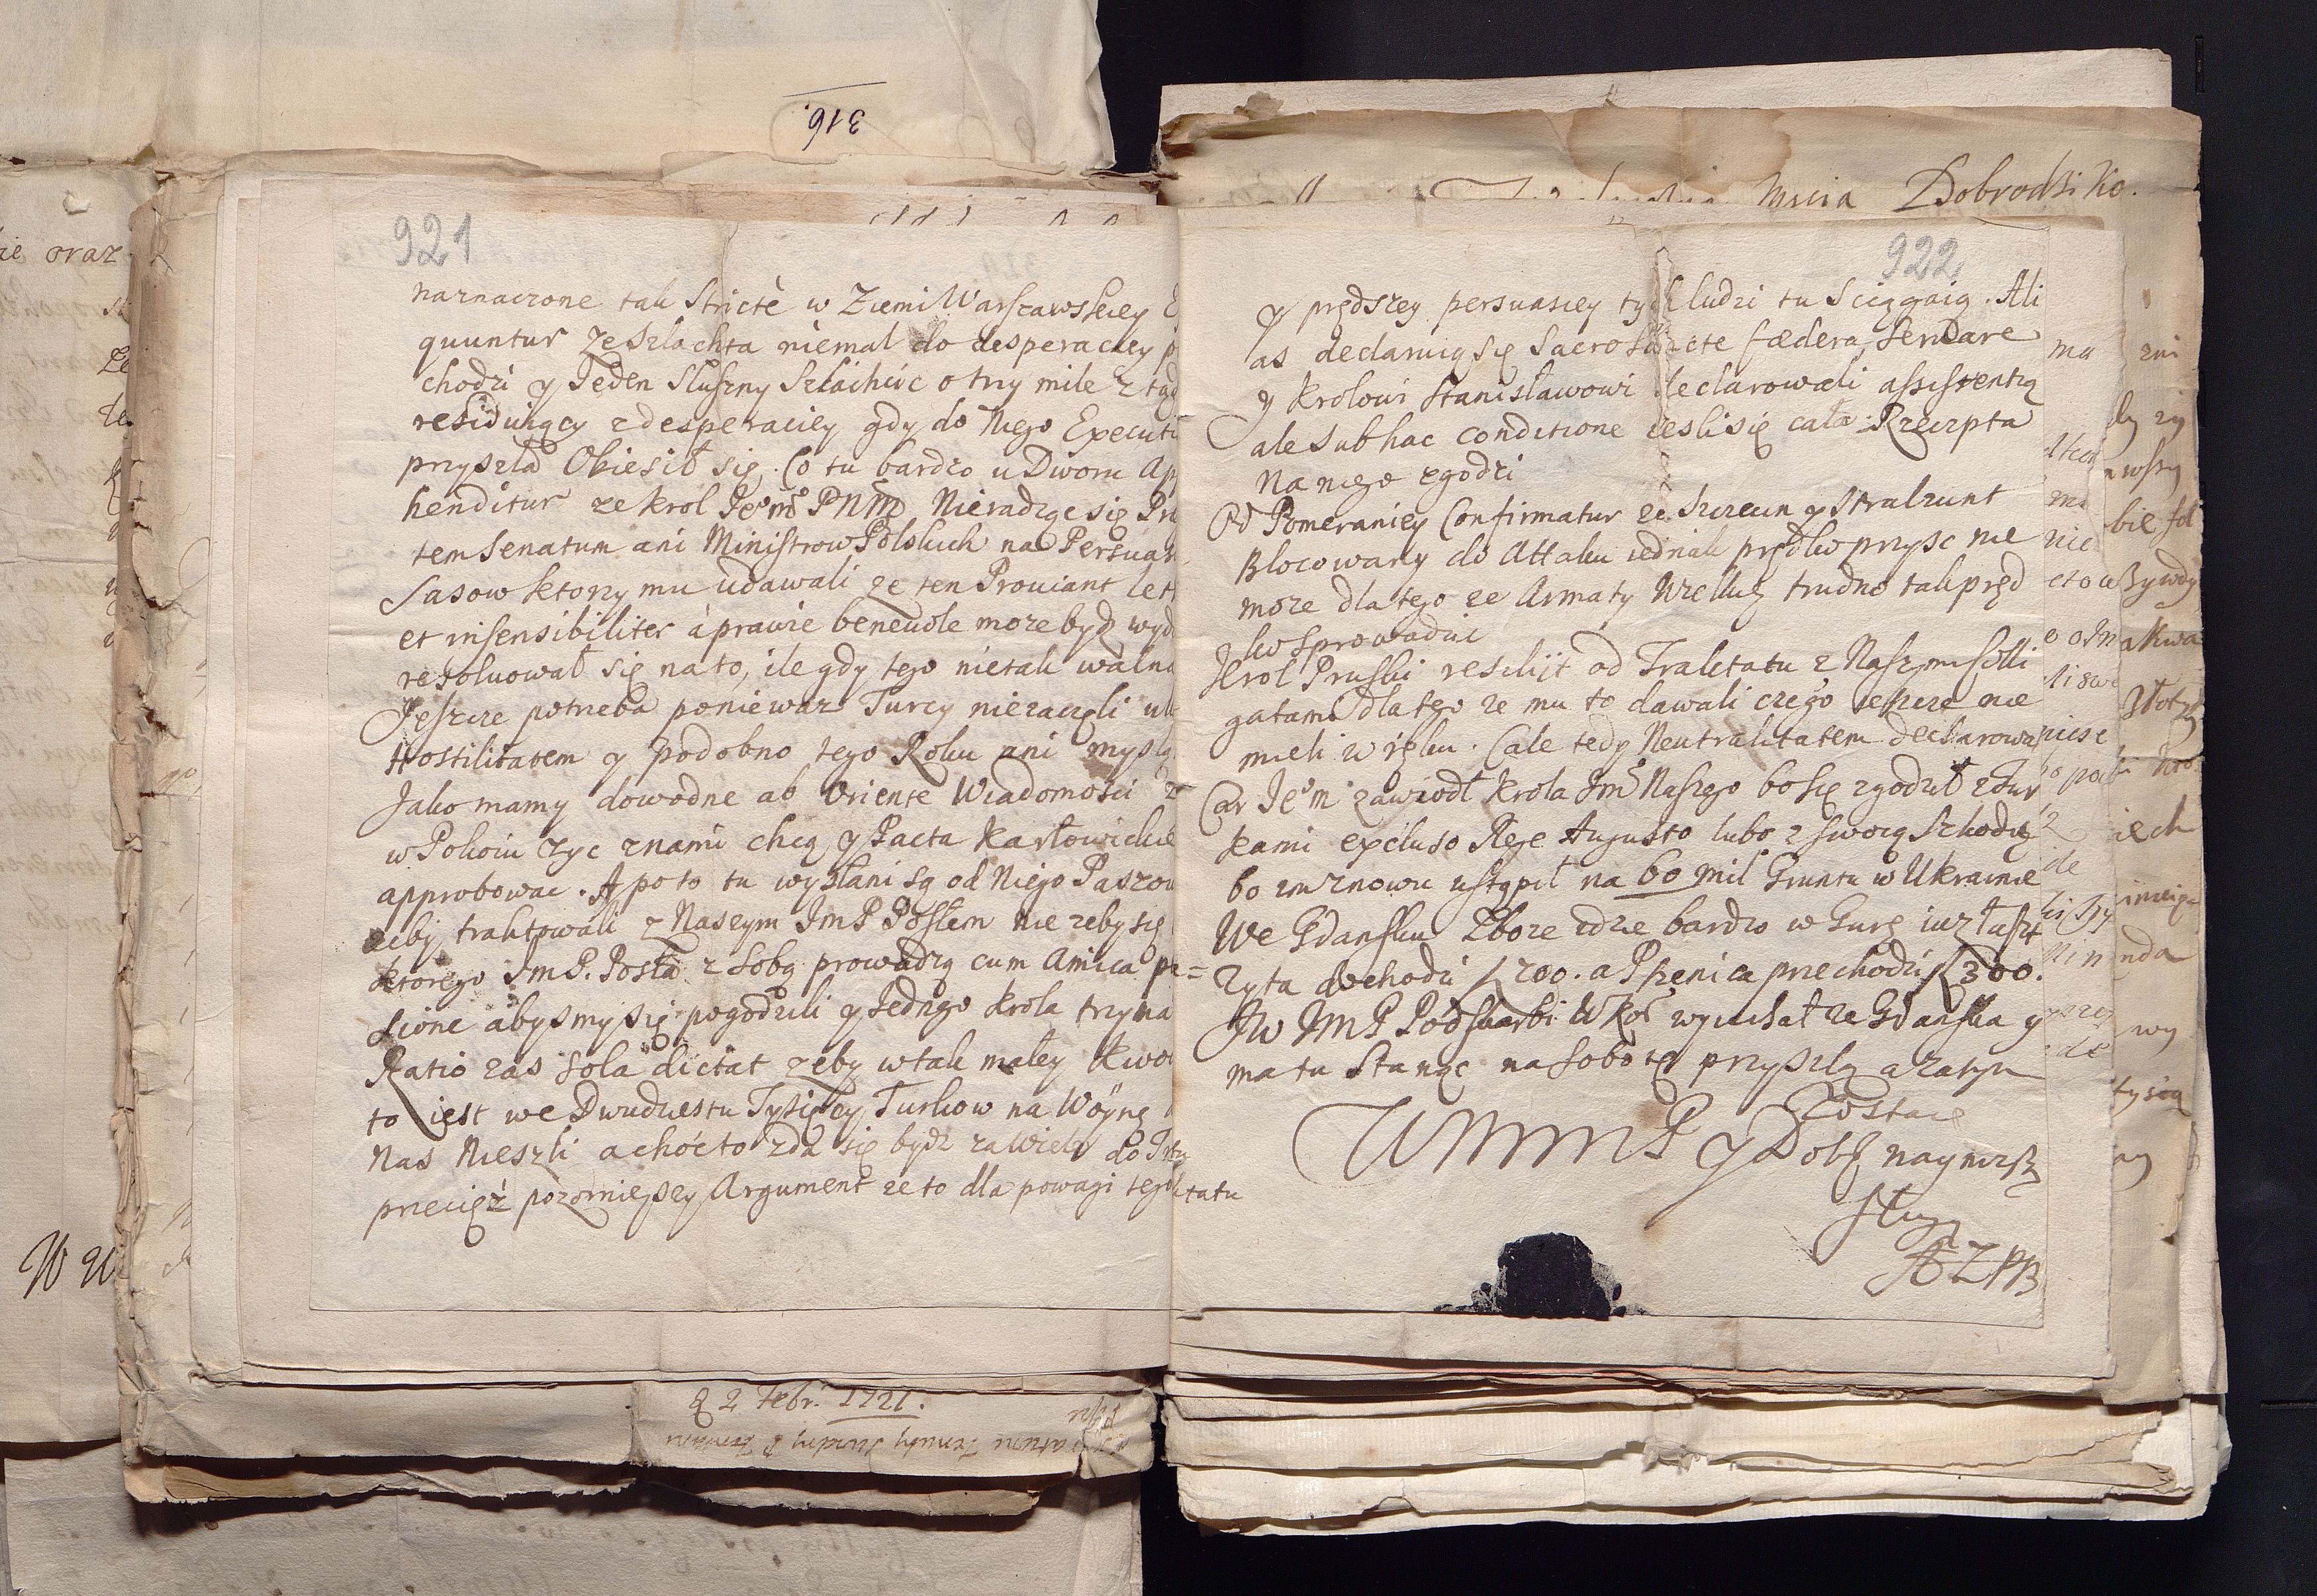 316.
ie oraz
Mcia Dobrodzi Ko.
921
naznaczone tak Strictè w Ziemi Warszawskiey
quuntur ze szlachta niemal do desperaciey
chodzi y Jeden Sluszny Szlachcic o trzy mile z tąd
residuiący z desperaciey gdy do Niego Executi
przyszła Obiesił się. Co tu bardzo u Dworu Ap
henditur ze krol Je°mś PNM Nieradząc się Pri
tem Senatum ani Ministrow Polskich na Persuas
Sasow ktorzy mu udawali ze ten Prowiant let
et insensibiliter á prawie benevole moze bydz wyd
rezolwował się na to, ile gdy tego nietak walna
Jeszcze potrzeba poniewaz Turcy niezaczęli ul
Hostilitatem y podobno tego Roku ani myslą
Jako mamy dowodne ab Oriente Wiadomosci z
w Pokoiu zyc z nami chcą y Pacta Karłowickie
approbowac. A po to tu wysłani są od Niego Paszow
zeby traktowali z Naszym JmP Posłem nie zeby się
ktorego JmP. Posła z sobą prowadzą cum Amica pa=
sione abysmy się pogodzili y Jednego krola trzyma
Ratio zas sola dictat zeby w tak małey kwo
to iest we Dwudziestu Tysięcy Turkow na Woynę
Nas Nieszli a choc to zda się bydz za wiele do Trak
przecięz pozornieyszy Argument ze to dla powagi tego tatu
922
y prędszey persuasiey tych ludzi tu sciągaią. Ali
as declaruią się Sacrosancte fœdera servare
y krolowi Stanisławowi declarowali assistentią
ale sub hac conditione ieśli się cała Rzeczpta
Na niego zgodzi
Od Pomeraniey Confirmatur ze Szczecin y Stralzunt
Blocowany do Attaku iednak prędko przysc nie
moze dla tego ze Armaty Wielkiey trudno tak pręd
ko sprowadzic
Krol Pruski resiliit od Traktatu z Naszymi Colli
gatami dla tego ze mu to dawali czego ieszcze nie
mieli w ręku. Cale tedy Neutralitatem declarowa
Car Je°m zawiodł Krola Jm Naszego bo się zgodził z Tur
kami excluso Rege Augusto lubo z swoią szkodą
bo im znowu ustąpił na 60 mil Gruntu w Ukrainie
We Gdansku Zboze idzie bardzo w Gurę iuz łaszt
Zyta dochodzi f 200. a Pszenica przechodzi f 300.
JW JMP Podskarbi WKor wyiechał ze Gdanska y
ma tu Stanąc na Sobotę przyszłą a zatym
Zostaię
WMMMP y Dobr naynizsz
Sługą
AZPB
d 2 Febr. 1721.